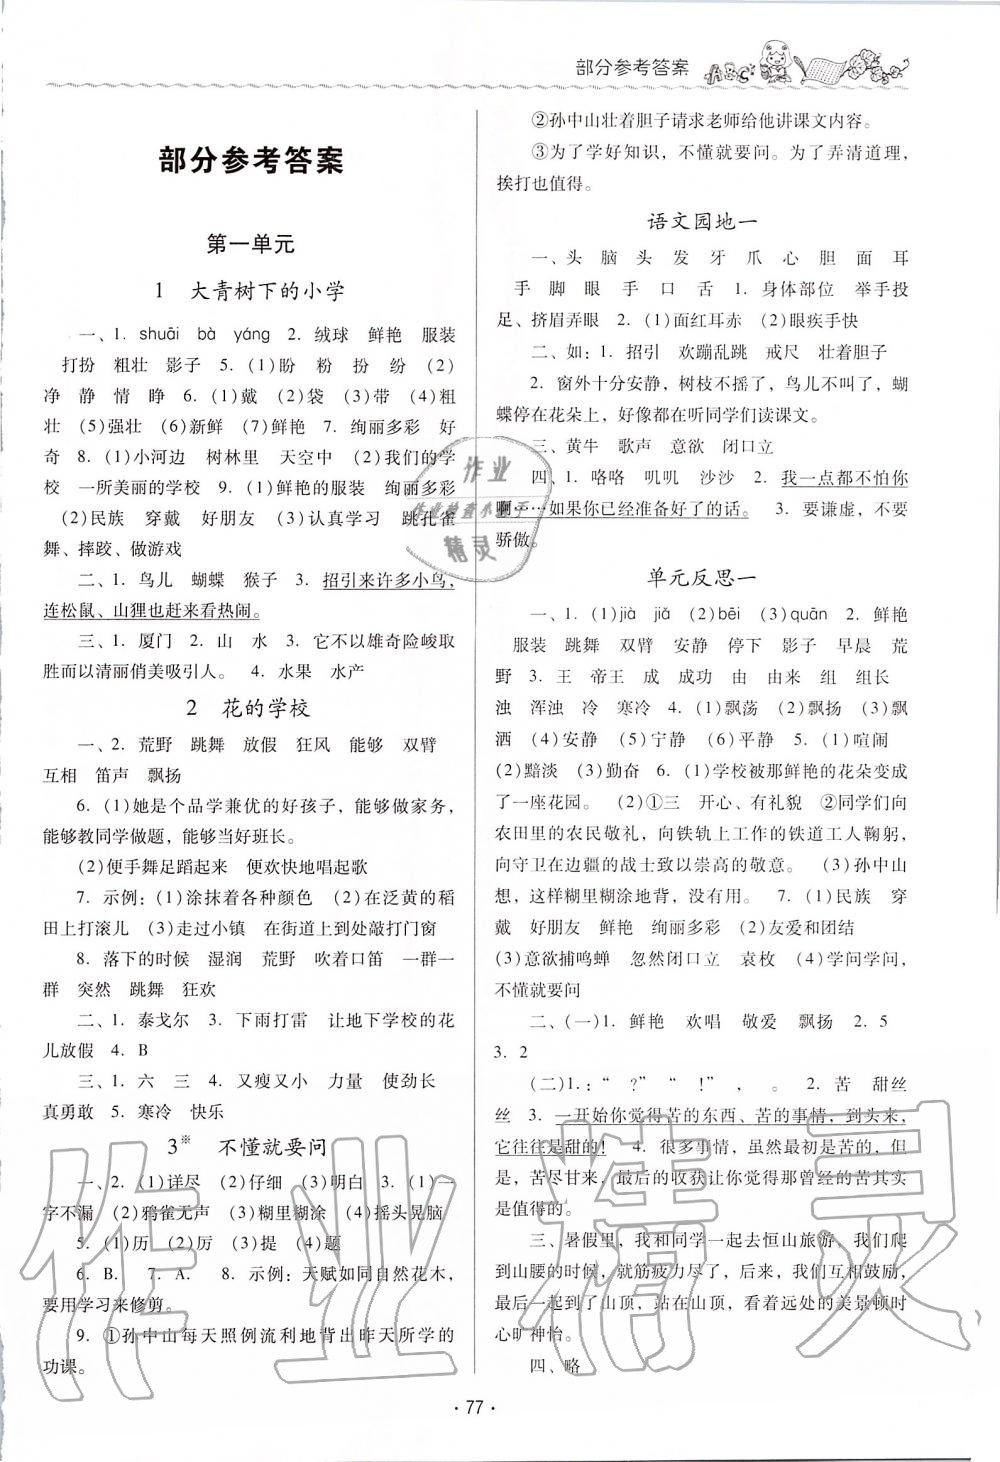 部分参考答案
ABC
部分参考答案
第一单元
1 大青树下的小学
一、1. shuāi bà yáng 2. 绒球 鲜艳 服装
打扮 粗壮 影子 5. (1)盼 粉 扮 纷 (2)
净 静 情 睁 6. (1)戴 (2)袋 (3)带 (4)粗
壮 (5)强壮 (6)新鲜 (7)鲜艳 7. 绚丽多彩 好
奇 8. (1)小河边 树林里 天空中 (2)我们的学
校 一所美丽的学校 9. (1)鲜艳的服装 绚丽多彩
(2)民族 穿戴 好朋友 (3)认真学习 跳孔雀
舞、摔跤、做游戏
二、1. 鸟儿 蝴蝶 猴子 3. 招引来许多小鸟,
连松鼠、山狸也赶来看热闹。
三、1. 厦门 2. 山 水 3. 它不以雄奇险峻取
胜而以清丽俏美吸引人。 4. 水果 水产
2 花的学校
一、2. 荒野 跳舞 放假 狂风 能够 双臂
互相 笛声 飘扬
6. (1)她是个品学兼优的好孩子,能够做家务,
能够教同学做题,能够当好班长。
(2)便手舞足蹈起来 便欢快地唱起歌
7. 示例:(1)涂抹着各种颜色 (2)在泛黄的稻
田上打滚儿 (3)走过小镇 在街道上到处敲打门窗
8. 落下的时候 湿润 荒野 吹着口笛 一群一
群 突然 跳舞 狂欢
二、1. 泰戈尔 3. 下雨打雷 让地下学校的花
儿放假 4. B
三、1. 六 三 4. 又瘦又小 力量 使劲长
真勇敢 5. 寒冷 快乐
3※ 不懂就要问
一、2. (1)详尽 (2)仔细 (3)明白 3. (1)一
字不漏 (2)鸦雀无声 (3)糊里糊涂 (4)摇头晃脑
5. (1)历 (2)厉 (3)提 (4)题
6. B. 7. A. 8. 示例:天赋如同自然花木,
要用学习来修剪。
9. ①孙中山每天照例流利地背出昨天所学的
功课。
②孙中山壮着胆子请求老师给他讲课文内容。
③为了学好知识,不懂就要问。为了弄清道理,
挨打也值得。
语文园地一
一、头 脑 头 发 牙 爪 心 胆 面 耳
手 脚 眼 手 口 舌 1. 身体部位 举手投
足、挤眉弄眼 2. (1)面红耳赤 (2)眼疾手快
二、如:1. 招引 欢蹦乱跳 戒尺 壮着胆子
2. 窗外十分安静,树枝不摇了,鸟儿不叫了,蝴
蝶停在花朵上,好像都在听同学们读课文。
三、黄牛 歌声 意欲 闭口立
四、1. 咯咯 叽叽 沙沙 2. 我一点都不怕你
啊……如果你已经准备好了的话。 3. 要谦虚,不要
骄傲。
单元反思一
一、1. (1)jià jiǎ (2)bēi (3)quān 2. 鲜艳
服装 跳舞 双臂 安静 停下 影子 早晨 荒
野 3. 王 帝王 成 成功 由 由来 组 组长
浊 浑浊 冷 寒冷 4. (1)飘荡 (2)飘扬 (3)飘
洒 (4)安静 (5)宁静 (6)平静 5. (1)喧闹
(2)黯淡 (3)勤奋 6. (1)学校被那鲜艳的花朵变成
了一座花园。 (2)①三 开心、有礼貌 ②同学们向
农田里的农民敬礼,向铁轨上工作的铁道工人鞠躬,
向守卫在边疆的战士致以崇高的敬意。 (3)孙中山
想,这样糊里糊涂地背,没有用。 7. (1)民族 穿
戴 好朋友 鲜艳 绚丽多彩 (2)友爱和团结
(3)意欲捕鸣蝉 忽然闭口立 袁枚 (4)学问学问,
不懂就要问
二、(一)1. 鲜艳 欢唱 敬爱 飘扬 2. 5
3. 2
(二)1. :“ ?”“ !” , 。 2. 苦 甜丝
丝 3. 一开始你觉得苦的东西、苦的事情,到头来,
它往往是甜的! 4. 很多事情,虽然最初是苦的,但
是,苦尽甘来,最后的收获让你觉得曾经的苦其实
是值得的。
三、暑假里,我和同学一起去恒山旅游,我们爬
到山腰的时候,就筋疲力尽了,后来,我们互相鼓励,
最后一起到了山顶,站在山顶,看着远处的美景顿时
心旷神怡。
四、略
· 77 ·
作业
作业检查小助手
精灵
作业精灵